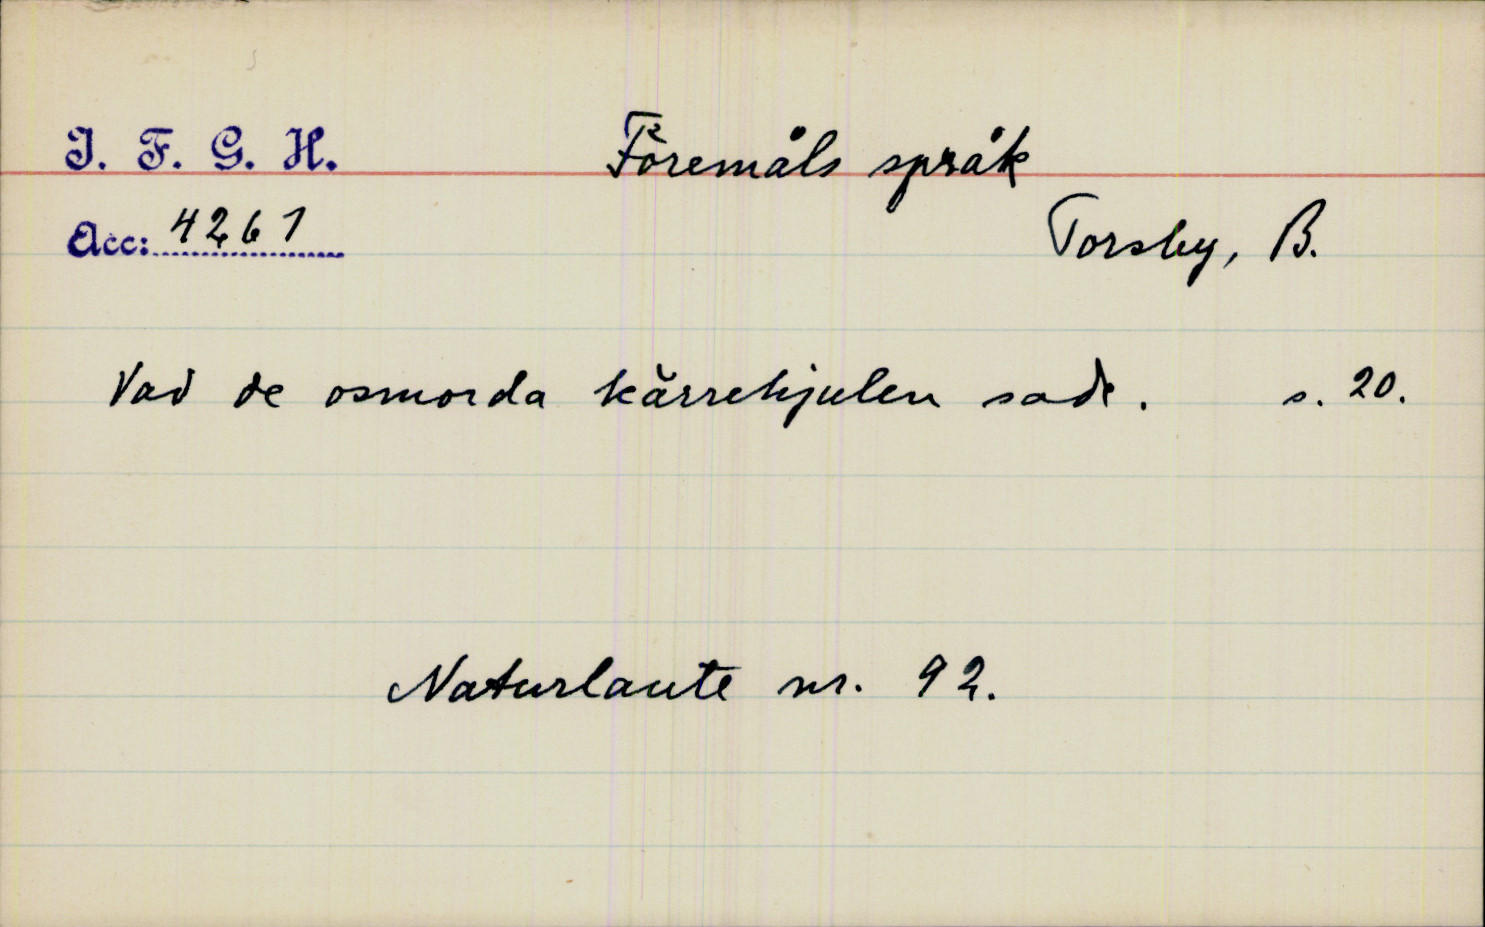 I. F. G. H.
Föremåls språk
Acc: 4261
Torsby, B.
Vad de osmorda kärrehjulen sade. s. 20.
Naturlaute nr. 92.